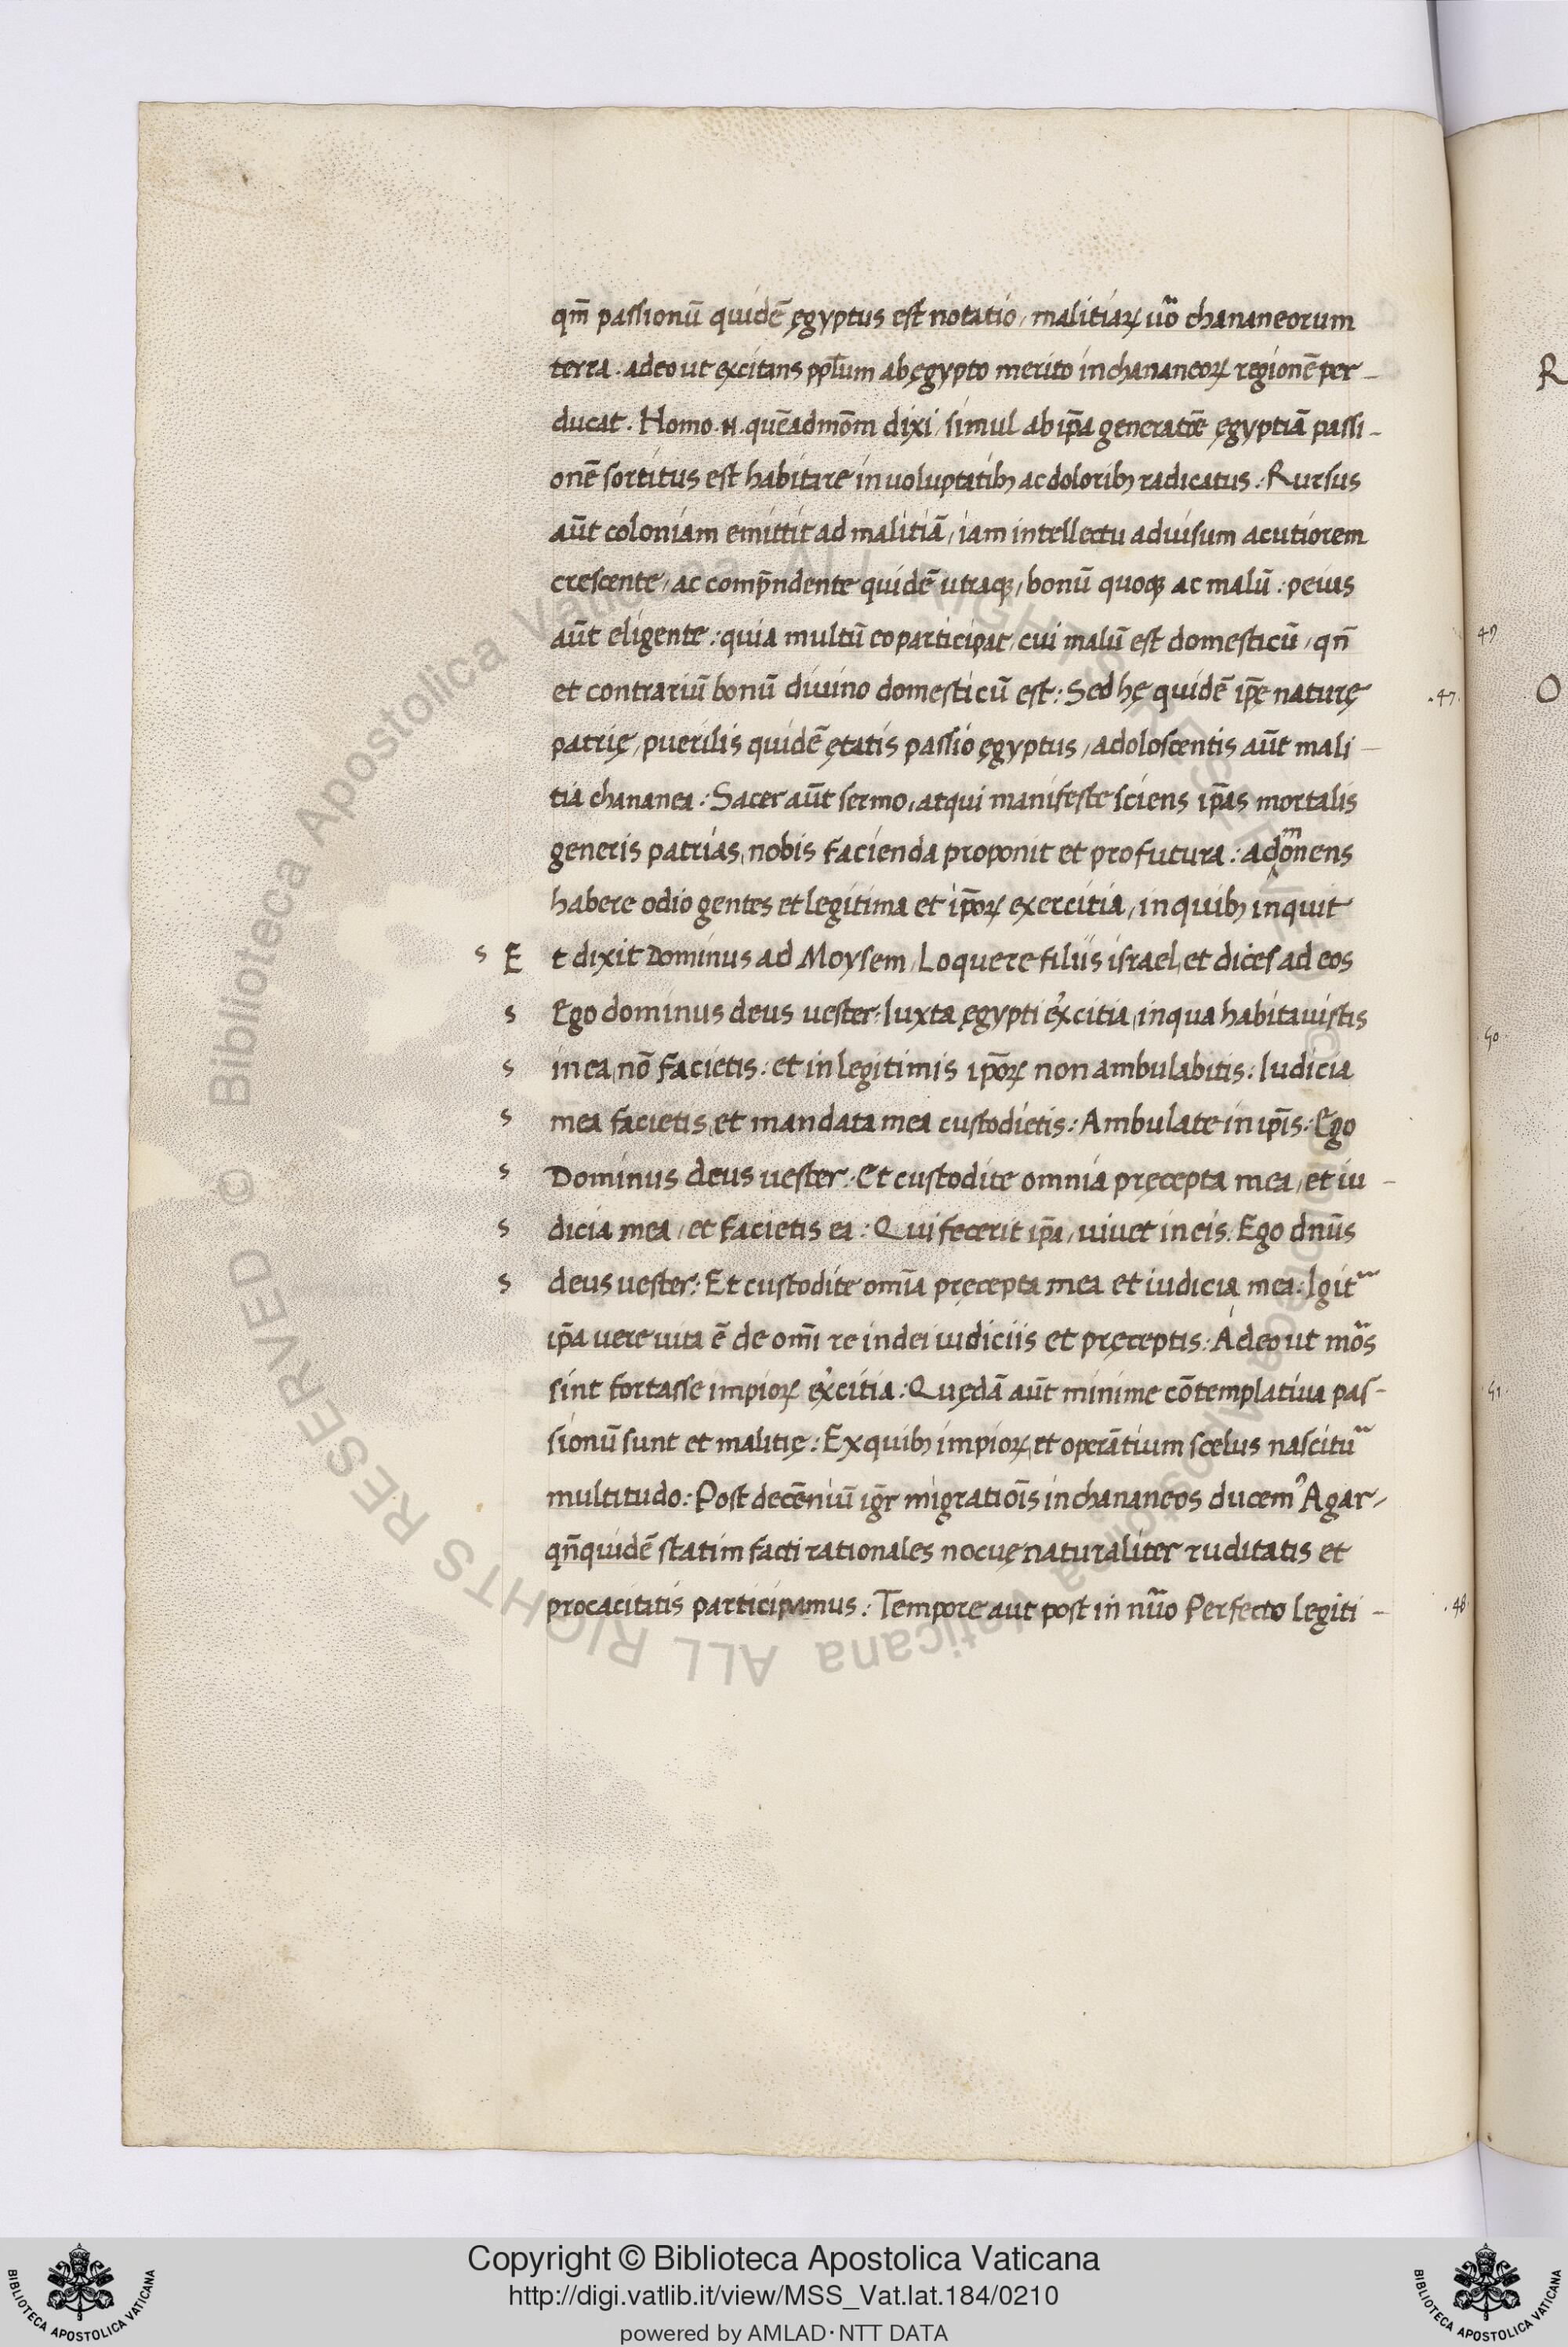 qm̄ passionū quidē ęgyptus est notatio, malitiaꝝ uo chananeorum
terra. adeo ut excitans pplum ab ęgypto merito in chananeoꝝ regionē per-
ducat. Homo .N. quēadmōm dixi, simul ab ip̄a generatōe ęgyptiā passi-
onē sortitus est habitare in uoluptatibꝫ ac doloribꝫ radicatus: Rursus
aūt coloniam emittit ad malitiā, iam intellectu ad uisum acutiorem
crescente, ac comp̄ndente quidē utraqꝫ, bonū quoqꝫ ac malū: peius
aūt eligente: quia multū eo participat, cui malū est domesticū, qn̄
et contrariū bonū diuino domesticū est: Sed hę quidē ip̄ę naturę
.47.
patrię, puerilis quidē ętatis passio ęgyptus, adoloscentis aūt mali-
tia chananea: Sacer aūt sermo, atqui manifeste sciens ip̄as mortalis
generis patrias, nobis facienda proponit et profutura: admonens
habere odio gentes et legitima et ip̄oꝝ exercitia, in quibꝫ inquit
s E t dixit Dominus ad Moysem, Loquere filiis israel, et dices ad eos
s Ego dominus deus uester: Iuxta ęgypti ex̓citia, in qua habitauistis
s in ea, nō facietis: et in legitimis ip̄oꝝ non ambulabitis: Iudicia
s mea facietis, et mandata mea custodietis: Ambulate in ip̄is: Ego
s Dominus deus uester: Et custodite omnia pręcepta mea, et iu-
s dicia mea, et facietis ea: Qui fecerit ip̄a, uiuet in eis. Ego dn̄us
s deus uester: Et custodite om̄ia pręcepta mea et iudicia mea: Igit
ip̄a uere uita ē de om̄i re in dei iudiciis et pręceptis: Adeo ut mōs
sint fortasse impioꝝ ex̓citia: Quędā aūt minime cōtemplatiua pas-
sionū sunt et malitię: Ex quibꝫ impioꝝ, et operātium scelus nascitu
multitudo: Post decēniū iḡr migratiōis in chananeos ducem̓ Agar,
qn̄quidē statim facti rationales nocuę naturaliter ruditatis et
procacititis participamus: Tempore aut post in nuo Perfecto legiti-
.48.
R
49
O
50.
51.
Copyright © Biblioteca Apostolica Vaticana
http://digi.vatlib.it/view/MSS_Vat.lat.184/0210
powered by AMLAD·NTT DATA
BIBLIOTECA APOSTOLICA VATICANA
BIBLIOTECA APOSTOLICA VATICANA
© Biblioteca Apostolica Vaticana ALL RIGHTS RESERVED © Biblioteca Apostolica Vaticana ALL RIGHTS RESERVED